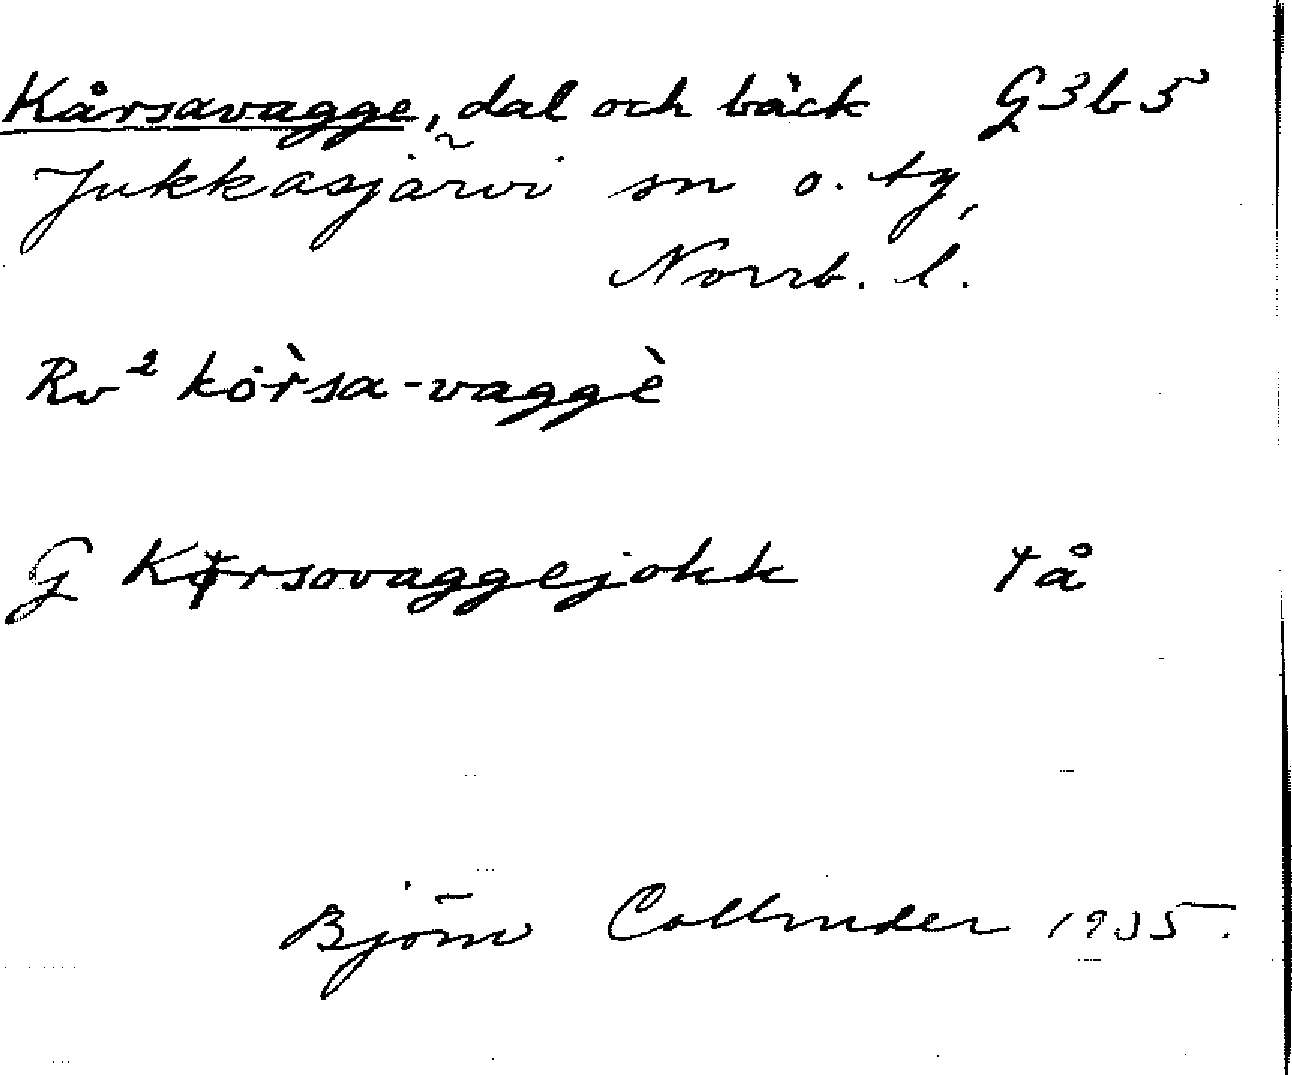 Kårsavagge, dal och bäck G3b5
Jukkasjärvi sn o. tg,
Norrb. l.
Rv² kȯ̀rsa-vaggè
G Kårsovaggejokk † å
Björn Collinder 1935.